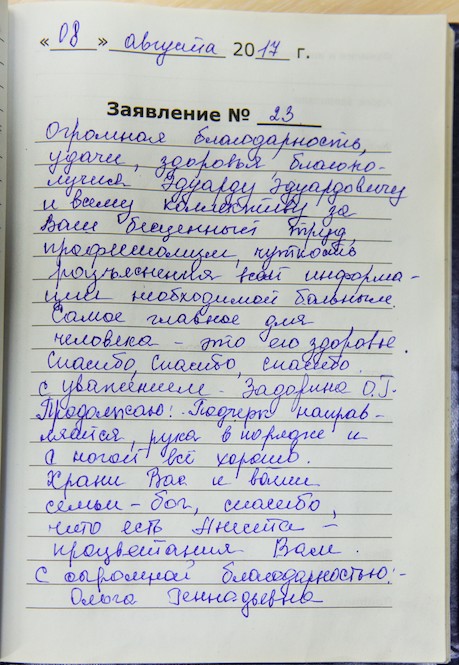 «08» августа 2017 г.
Заявление № 23
Огромная благодарность,
удачи, здоровья благопо-
лучия Эдуарду Эдуардовичу
и всему коллективу за
Ваш бесценный труд,
профессионализм, чуткость
разъяснения всей информа-
ции необходимой больным.
Самое главное для
человека - это его здоровье.
Спасибо, спасибо, спасибо.
с уважением - Задорина О.Г.
Продолжаю: - Подчерк направ-
ляется, рука в порядке и
с ногой всё хорошо.
Храни Вас и ваши
семьи - бог, спасибо,
что есть -
процветания Вам.
С огромной благодарностью: -
Ольга Геннадьевна